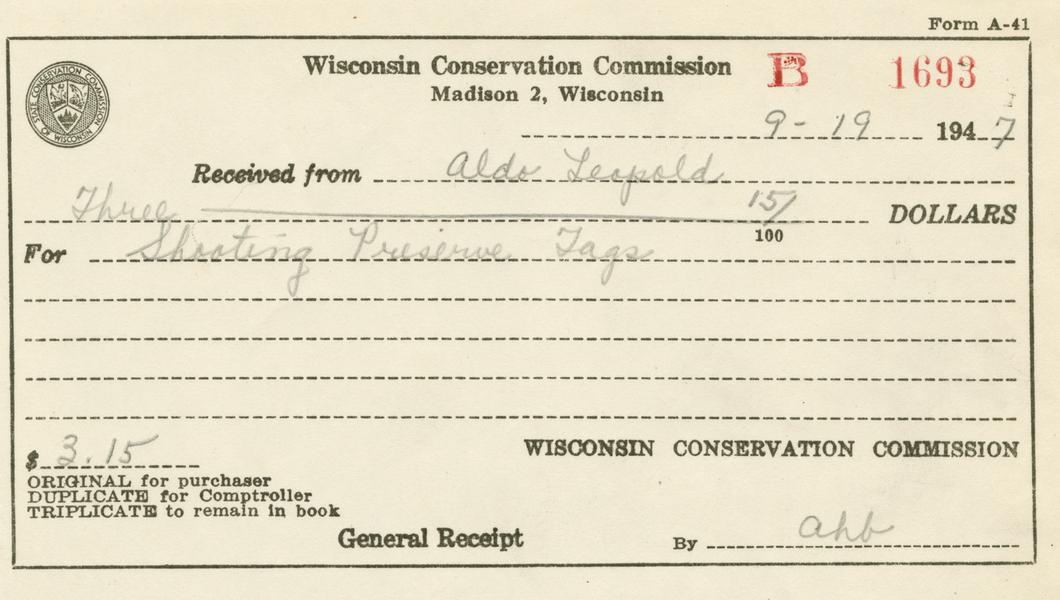 Form A-41
STATE CONSERVATION COMMISSION OF WISCONSIN
Wisconsin Conservation Commission B 1693
Madison 2, Wisconsin
9-19 1947
Received from Aldo Leopold
Three 15/100 DOLLARS
For Shooting Preserve Tags
$ 3.15 WISCONSIN CONSERVATION COMMISSION
ORIGINAL for purchaser
DUPLICATE for Comptroller
TRIPLICATE to remain in book
General Receipt By ahb